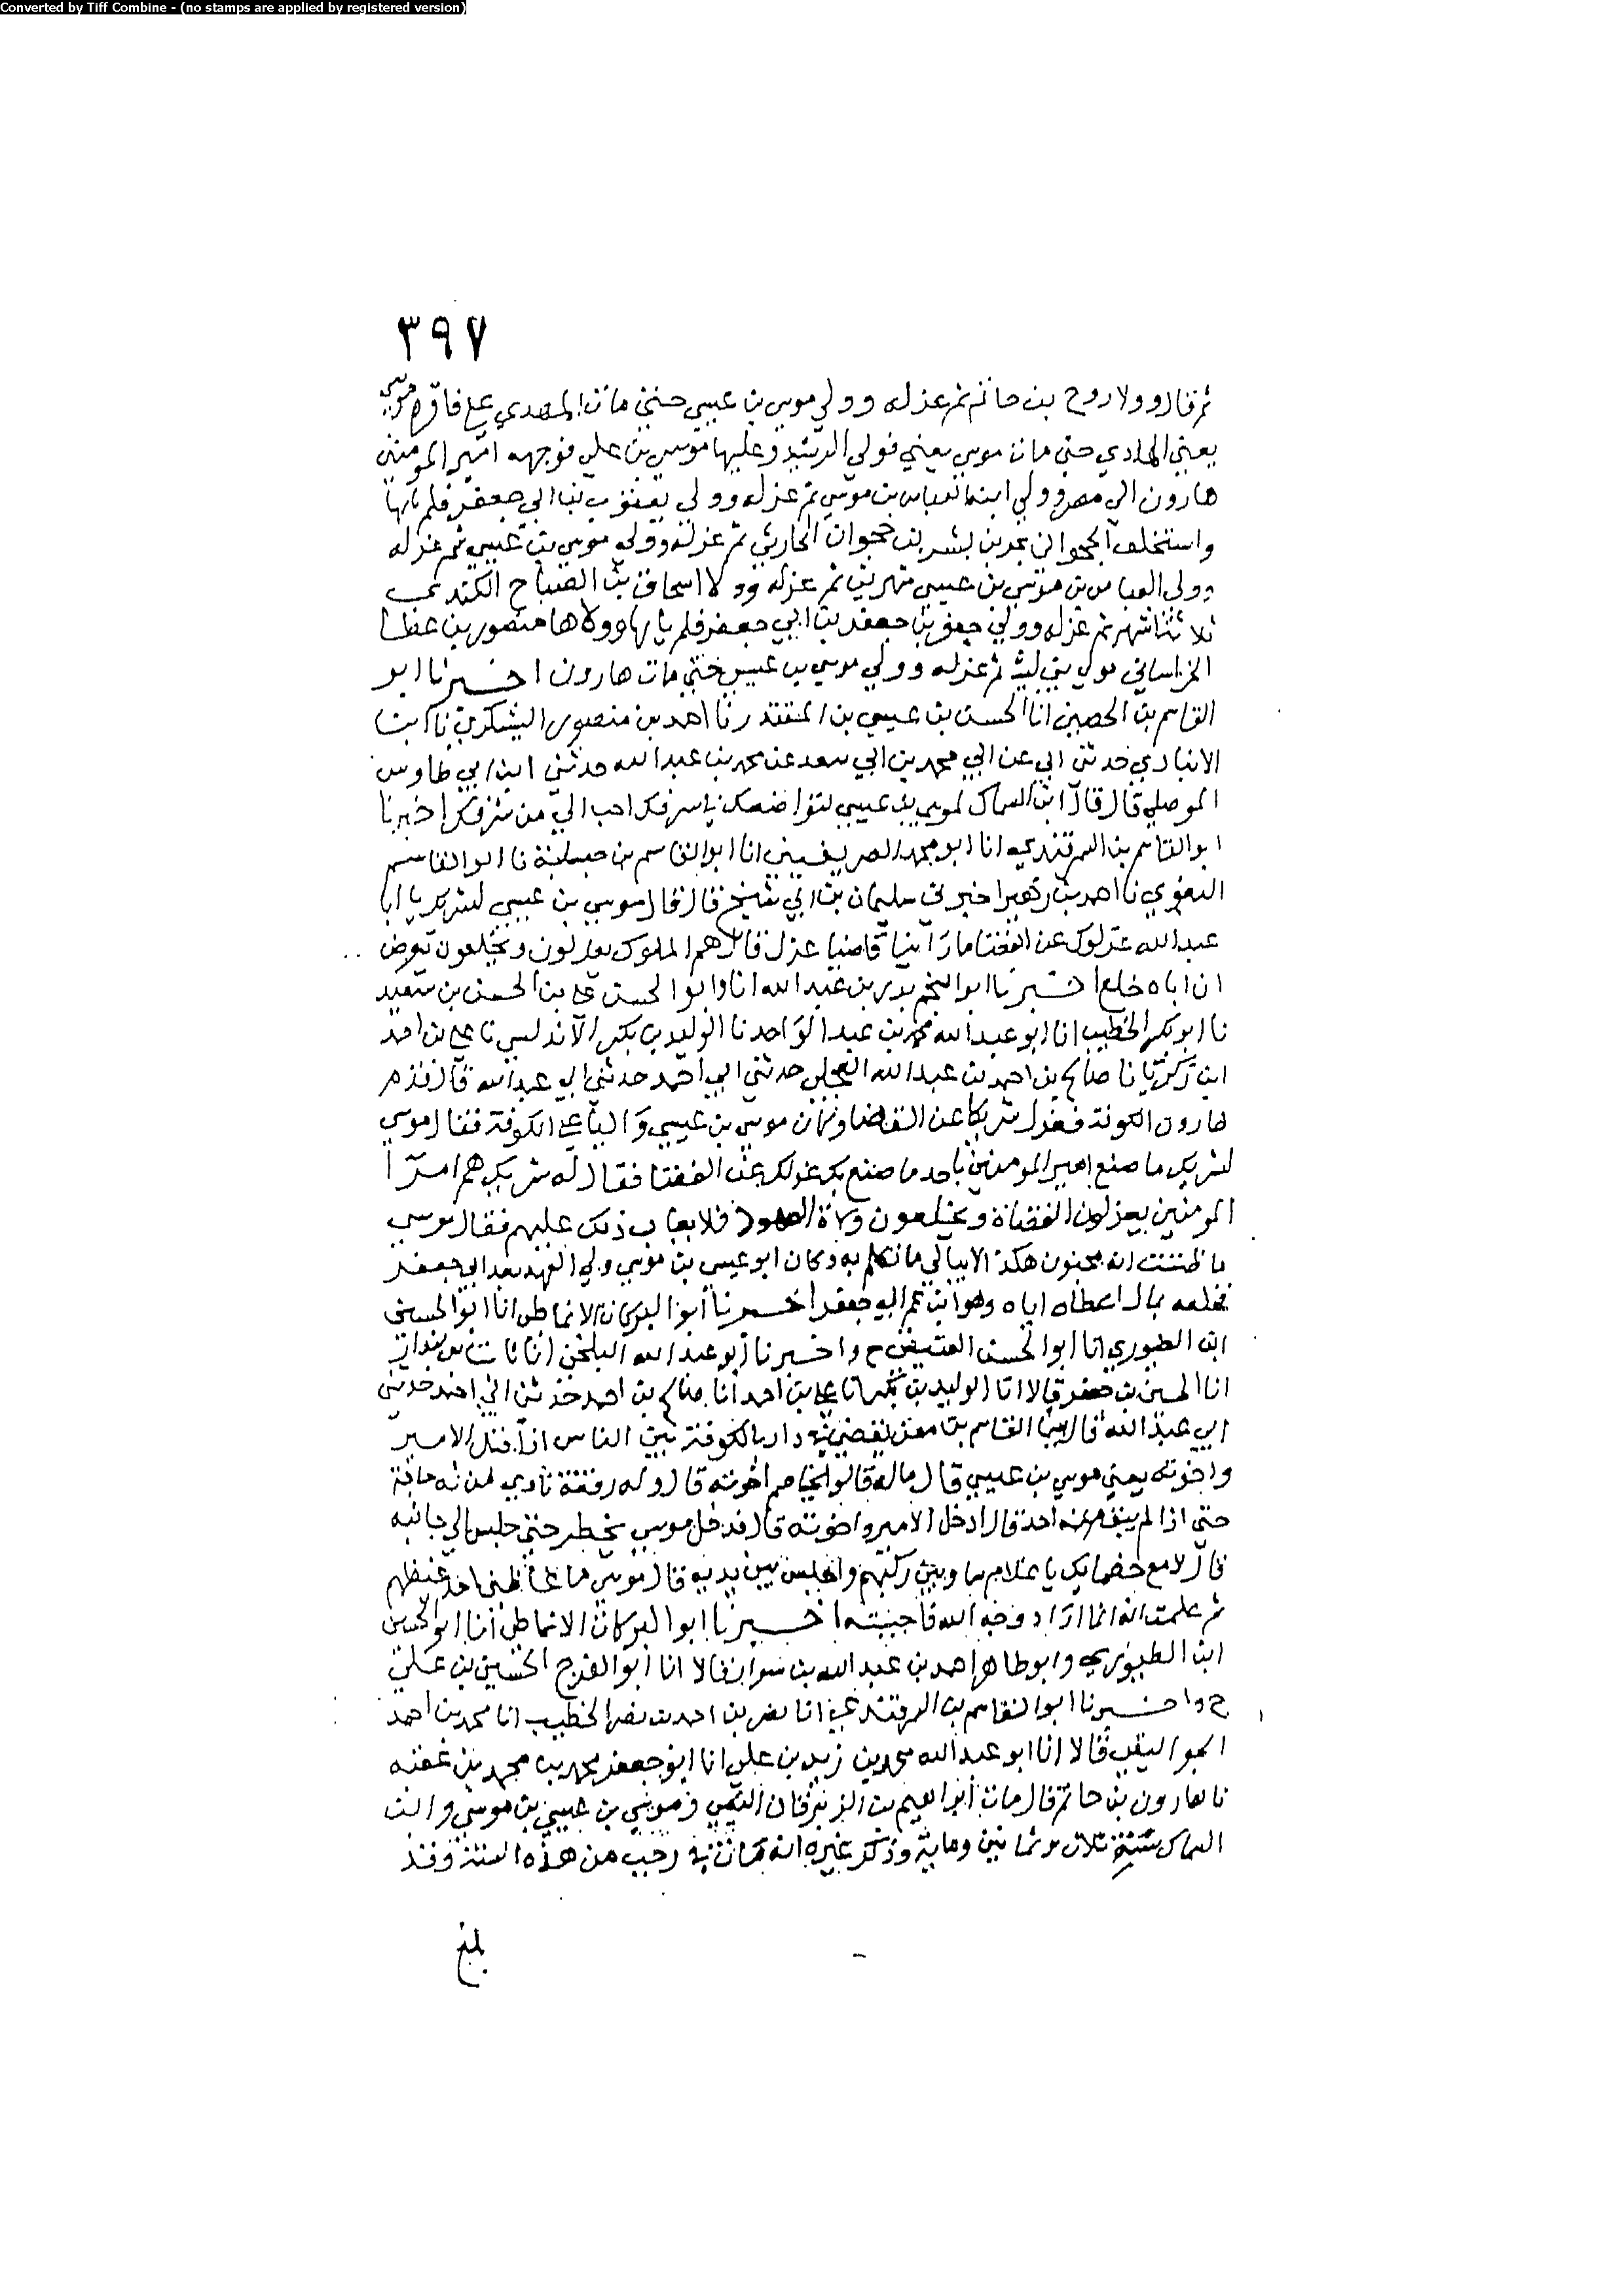 Converted by Tiff Combine - (no stamps are applied by registered version)
٣٩٧
ثم قال وولا روح بن حاتم ثم عزله وولي موسى بن عيسى حتى مات المهدي على فاقره موسى
يعني الهادي حتى مات موسى يعني فولي الرشيد وعليها موسى بن عيسى فوجهه امير المومنين
هارون الى مصر وولي ابنه العباس بن موسى ثم عزله وولى يعقوب بن ابي جعفر فلم ياتها
واستخلف عمر بن بشر بن جحوان الحارثي ثم عزله وولى موسى بن عيسى ثم عزله
وولى العباس بن موسى بن عيسى شهرين ثم عزله وولا اسحاق بن الصباح الكندي
ثلاثة اشهر ثم عزله وولي جعفر بن جعفر بن ابي جعفر فلم ياتها وولاها منصور بن عطا
الخراساني مولى بني ليث ثم عزله وولي موسى بن عيسى حتى مات هارون اخبرنا ابو
القاسم بن الحصين انا الحسن بن عيسى بن المقتدر نا احمد بن منصور اليشكري نا
الانباري حدثني ابي عن ابي محمد بن ابي سعد عن محمد بن عبد الله حدثني ابن ابي طاوس
الموصلي قال قال ابن السماك لموسى بن عيسى لتواضعك في شرفك احب الي من شرفك اخبرنا
ابو القاسم بن السمرقندي انا ابو محمد الصريفيني انا ابو القاسم بن حبابة نا ابو القاسم
البغوي نا احمد بن زهير اخبرني سليمان بن ابي شيخ قال قال موسى بن عيسى لشريك يا ابا
عبد الله عزلوك عن القضا ما راينا قاضيا عزل قال هم الملوك يعزلون ويخلعون يعرض
ان اباه خلع اخبرنا ابو النجم بدر بن عبد الله انا وابو الحسن علي بن الحسن بن سعيد
نا ابو بكر الخطيب انا ابو عبد الله محمد بن عبد الواحد نا الوليد بن بكر الاندلسي نا علي بن احمد
ابن زكريا نا صالح بن احمد بن عبد الله العجلي حدثني ابي احمد حدثني ابي عبد الله قال قدم
هارون الكوفة فعزل شريكا عن القضا وكان موسى بن عيسى واليا على الكوفة فقال موسى
لشريك ما صنع امير المومنين باحد ما صنع بك عزلك عن القضا فقال له شريك هم امرا
المومنين يعزلون القضاة ويخلعون ولاة العهود فلا يعاب ذلك عليهم فقال موسى
ما ظننت انه مجنون هكذا لا يبالي ما تكلم به وكان ابو عيسى بن موسى ولي العهد بعد ابي جعفر
فخلعه بمال اعطاه اياه وهو ابن عم ابي جعفر اخبرنا ابو البركات الانماطي انا ابو الحسين
ابن الطيوري انا ابو الحسن العتيقي ح واخبرنا ابو عبد الله البلخي انا ثابت بن بندار
انا الحسين بن جعفر قالا انا الوليد بن بكر انا علي بن احمد انا صالح بن احمد حدثني ابي احمد حدثني
ابي عبد الله قال بينا القاسم بن معن يقضي في داره بالكوفة بين الناس اذ اقبل الامير
واخوته يعني موسى بن عيسى قال ماله قالوا يخاصم اخوته قال وله رقعة نادي من له حاجة
حتى اذا لم يبق منهم احد قال ادخل الامير واخوته قال فدخل موسى يخطر حتى جلس الى جانبه
قال لا مع خصمايك يا غلام ساو بين ركبهم واجلس بين يديه قال موسى ما غاظني احد غيظهم
ثم علمت انه انما اراد وجه الله فاجبته اخبرنا ابو البركات الانماطي انا ابو الحسين
ابن الطيوري وابو طاهر احمد بن عبد الله بن سوار قالا انا ابو الفرج الحسين بن علي
ح واخبرنا ابو القاسم بن السمرقندي انا نصر بن احمد بن نصر الخطيب انا محمد بن احمد
الجواليقي قالا انا ابو عبد الله محمد بن زيد بن علي انا ابو جعفر محمد بن محمد بن عقبه
نا هارون بن حاتم قال مات ابراهيم بن الزبرقان التيمي وموسى بن عيسى بن موسى وابن
السماك سنة ثلاث وثمانين وماية وذكر غيره انه مات في رجب من هذه السنة وقد
بلغ